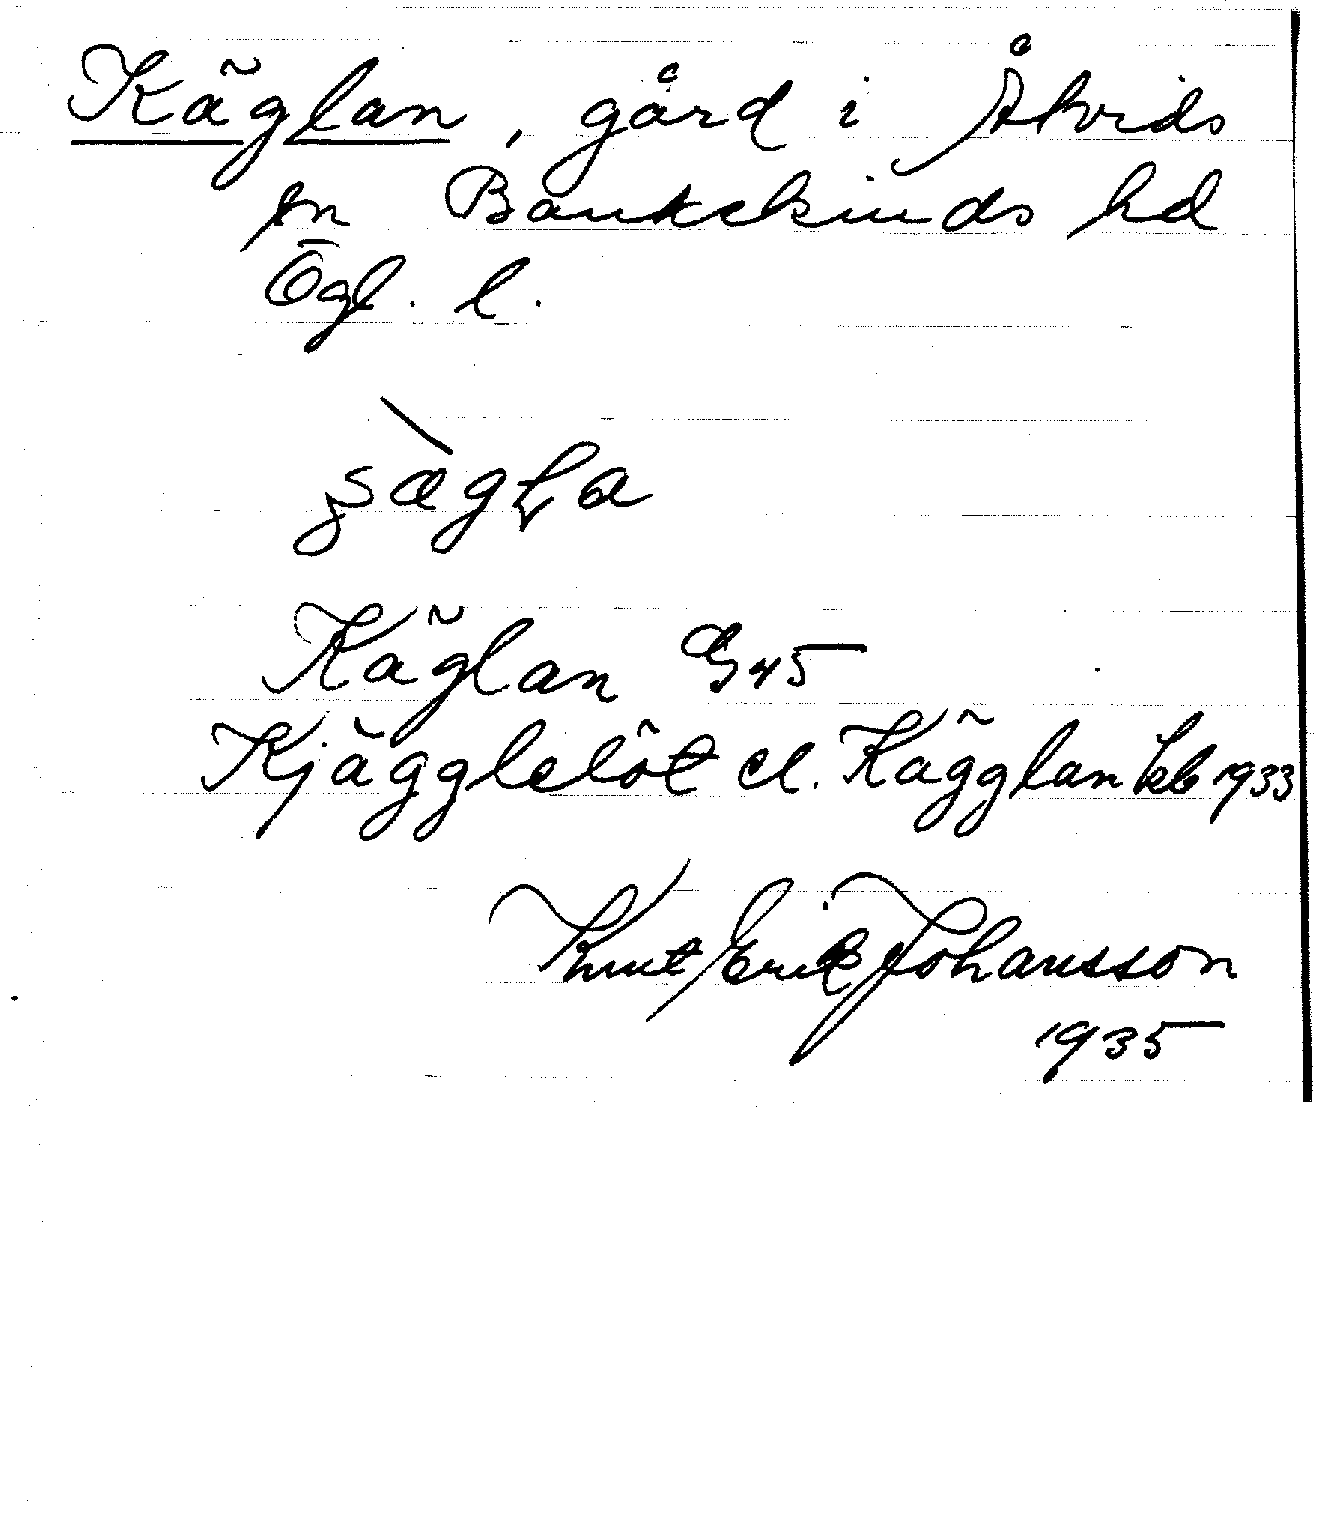 Käglan, gård i Åtvids
sn Bankekinds hd
Ögl. l.
Käglan G 45
Kjägglelöt el. Kägglan 1933
Knut Erik Johansson
1935